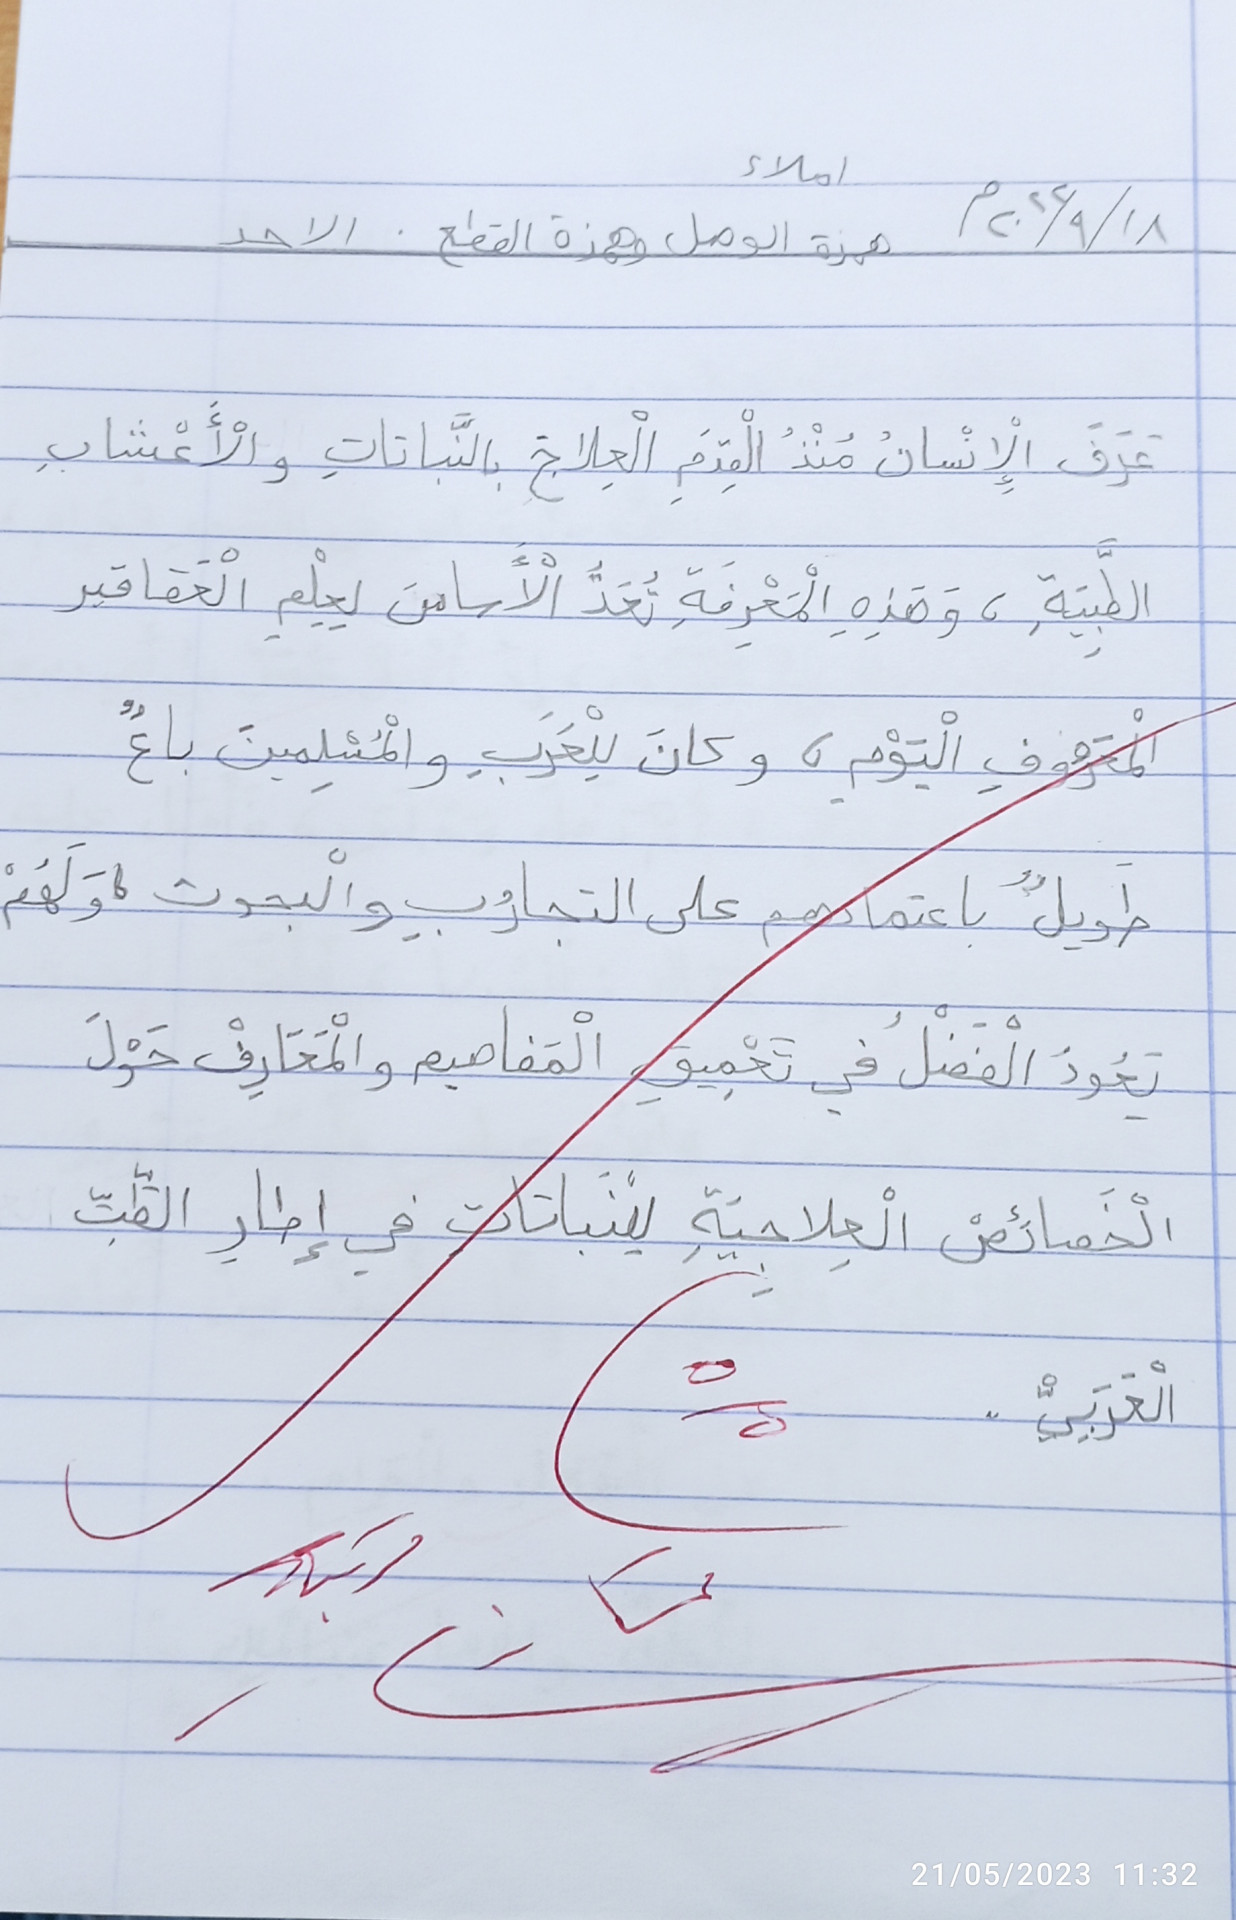 املاء
١٨/٩/٢٠٢٢م
همزة الوصل وهمزة القطع . الاحد
عَرَفَ الْإِنْسانُ مُنْذُ الْقِدَمِ الْعِلاجَ بِالنَّباتاتِ و الْأَعْشابِ
الطِّبِّيَةِ ، وَهَذِهِ الْمَعْرِفَةِ تُعَدُّ الْأَساسَ لِعِلْمِ الْعَقاقير
الْمَعْروفِ الْيَوْمِ ، و كانَ لِلْعَرَبِ و الْمُسْلِمينَ باعٌ
طَويلٌ باعتمادهم على التجارُبِ والْبحوث ، وَلَهُمْ
يَعُودُ الْفَضْلُ في تَعْمِيقِ الْمَفاهيم والْمَعَارِفْ حَوْلَ
الْخَصائَصْ الْعِلاجِيَّةِ لِلنَّباتاتِ في إِطارِ الطِّبِّ
الْعَرَبِيِّ .
٥
٥
21/05/2023 11:32